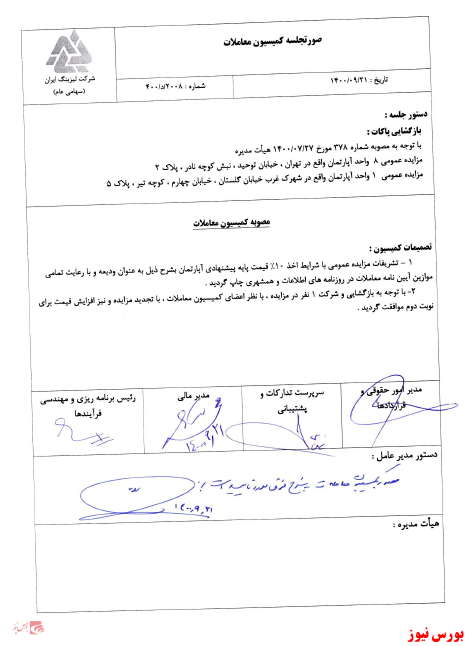 صورتجلسه کمیسیون معاملات
شرکت لیزینگ ایران
(سهامی عام)
تاریخ : ۱۴۰۰/۰۹/۲۱
شماره : ۴۰۰/د/۲۰۰۸
دستور جلسه :
بازگشایی پاکات :
با توجه به مصوبه شماره ۳۷۸ مورخ ۱۴۰۰/۰۷/۲۷ هیأت مدیره
مزایده عمومی ۸ واحد آپارتمان واقع در تهران ، خیابان توحید ، نبش کوچه نادر ، پلاک ۲
مزایده عمومی ۱ واحد آپارتمان واقع در شهرک غرب خیابان گلستان ، خیابان چهارم ، کوچه تیر ، پلاک ۵
مصوبه کمیسیون معاملات
تصمیمات کمیسیون :
۱ – تشریفات مزایده عمومی با شرایط اخذ ۱۰٪ قیمت پایه پیشنهادی آپارتمان بشرح ذیل به عنوان ودیعه و با رعایت تمامی
موازین آیین نامه معاملات در روزنامه های اطلاعات و همشهری چاپ گردید .
۲- با توجه به بازگشایی و شرکت ۱ نفر در مزایده ، با نظر اعضای کمیسیون معاملات ، با تجدید مزایده و نیز افزایش قیمت برای
نوبت دوم موافقت گردید .
مدیر امور حقوقی و
قراردادها
سرپرست تدارکات و
پشتیبانی
مدیر مالی
رئیس برنامه ریزی و مهندسی
فرآیندها
دستور مدیر عامل :
هیأت مدیره :
بورس نیوز